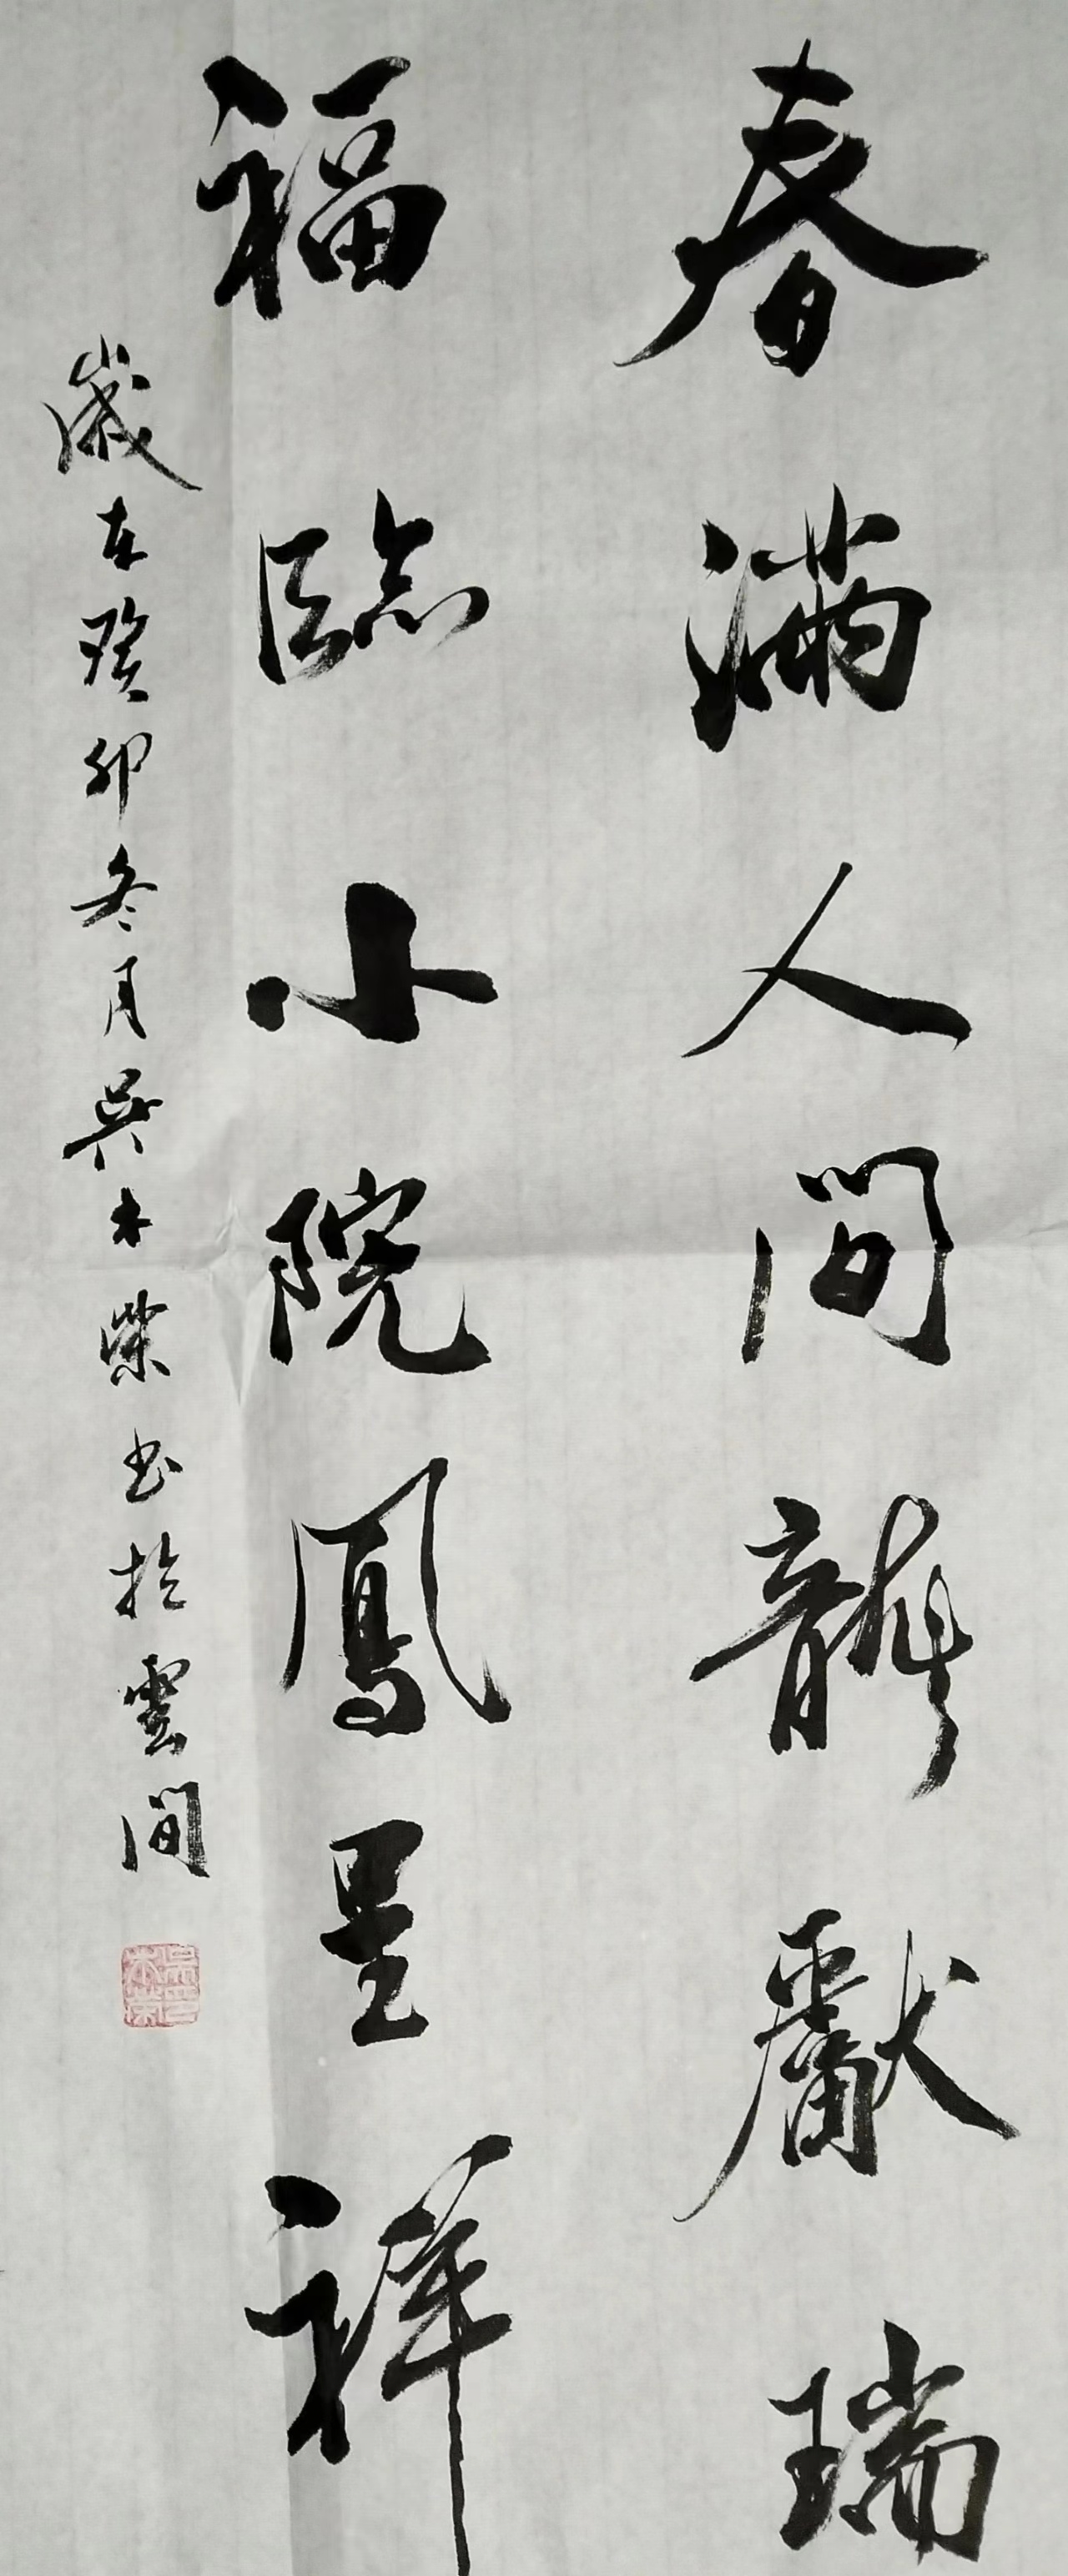 春滿人間龍獻瑞
福臨小院鳳呈祥
歲在癸卯冬月吳木柴书於雲间